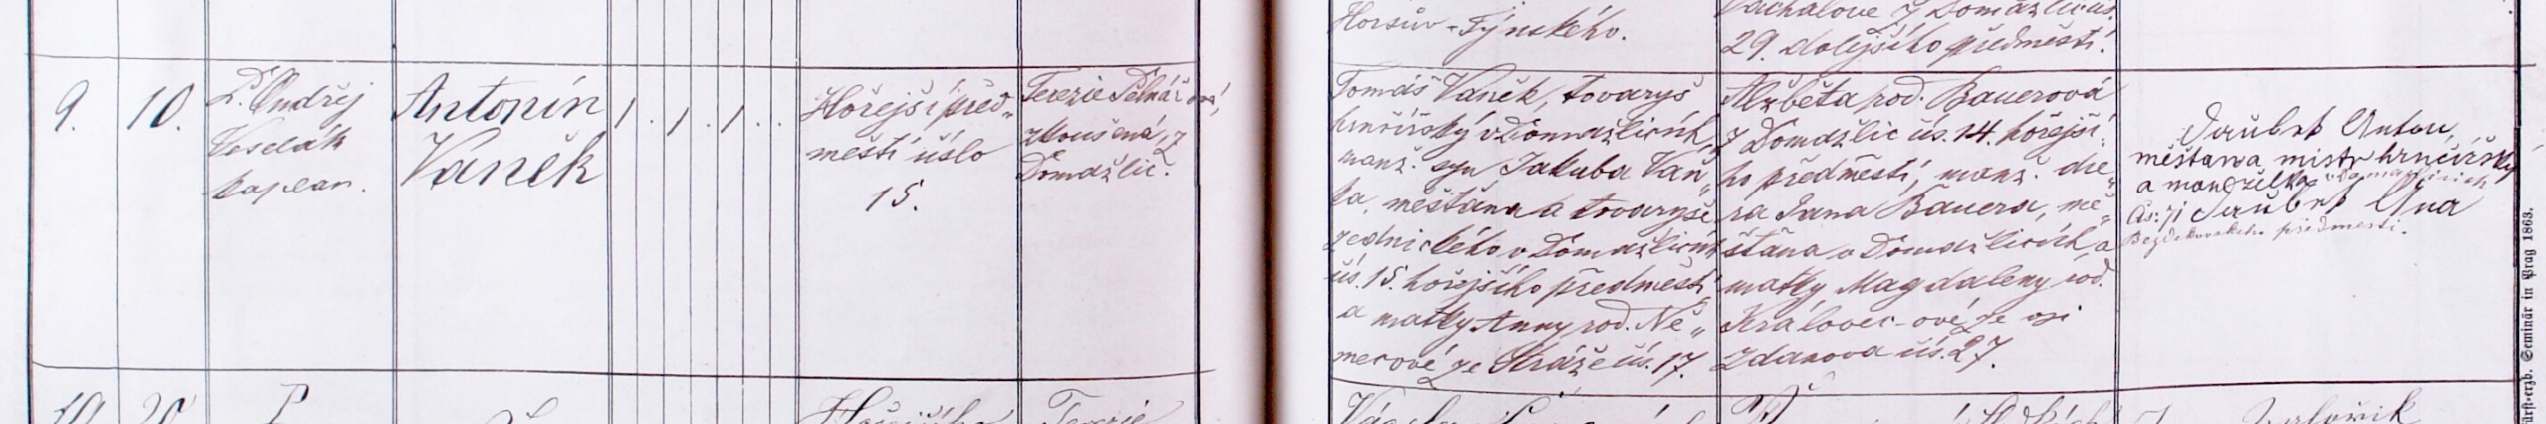 Horšův-Týnského.
29. dolejšího předměstí.
9.
10.
P. Ondřej
Veselák
kaplan.
Antonín
Vaněk
1
1
1
Hořejší před„
městí číslo
15.
Terezie
zkoušená, z
Domažlic.
Tomáš Vaněk, tovaryš
hrnčířský v Domažlicích,
manž. syn Jakuba Vaň„
ka, měštána a tovaryše
zednického v Domažlicích
čís. 15. hořejšího předměstí
a matky Anny rod. Ně„
mecové ze Stráže čís. 17.
Alžběta rod. Bauerová
z Domažlic čís. 14. hořejší„
ho předměstí, manž. dce„
ra Jana Bauera, mě„
štána v Domažlicích a
matky Magdaleny rod.
Královec-ové ze vsi
Zdanova čís. 27.
Taubrt Anton,
měštana mistr hrnčířský
a mandželka v Domažlicich
Čís: 71 Taubrt Ana
Bezdekovskeho předmesti.
10
20
P
Hořejšího
Terezie
Fürst-erzb. Seminär in Prag 1863.